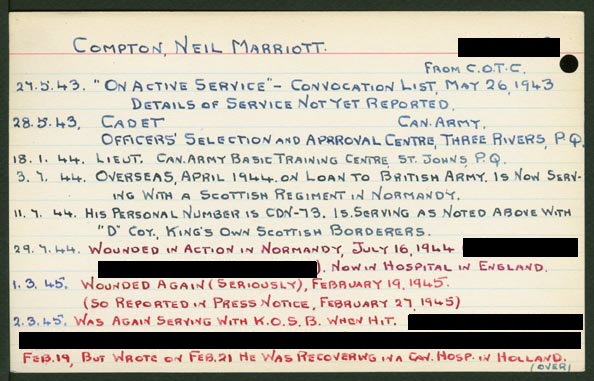 COMPTON, NEIL MARRIOTT.
FROM C.O.T.C.
27.5.43. "ON ACTIVE SERVICE" - CONVOCATION LIST, MAY 26, 1943
DETAILS OF SERVICE NOT YET REPORTED.
28.5.43, CADET CAN. ARMY.
OFFICERS' SELECTION AND APRROVAL CENTRE, THREE RIVERS, P.Q.
18.1.44. LIEUT. CAN. ARMY BASIC TRAINING CENTRE, ST. JOHNS, P.Q.
3.7.44. OVERSEAS, APRIL 1944. ON LOAN TO BRITISH ARMY. IS NOW SERV-
ING WITH A SCOTTISH REGIMENT IN NORMANDY.
11.7.44. HIS PERSONAL NUMBER IS CDN-73. IS SERVING AS NOTED ABOVE WITH
"D" COY., KING'S OWN SCOTTISH BORDERERS.
29.7.44. WOUNDED IN ACTION IN NORMANDY, JULY 16, 1944
). NOW IN HOSPITAL IN ENGLAND.
1.3.45. WOUNDED AGAIN (SERIOUSLY), FEBRUARY 19, 1945.
(SO REPORTED IN PRESS NOTICE, FEBRUARY 27, 1945)
2.3.45. WAS AGAIN SERVING WITH K.O.S.B. WHEN HIT.
FEB. 19, BUT WROTE ON FEB. 21 HE WAS RECOVERING IN A CAN. HOSP. IN HOLLAND.
(OVER)